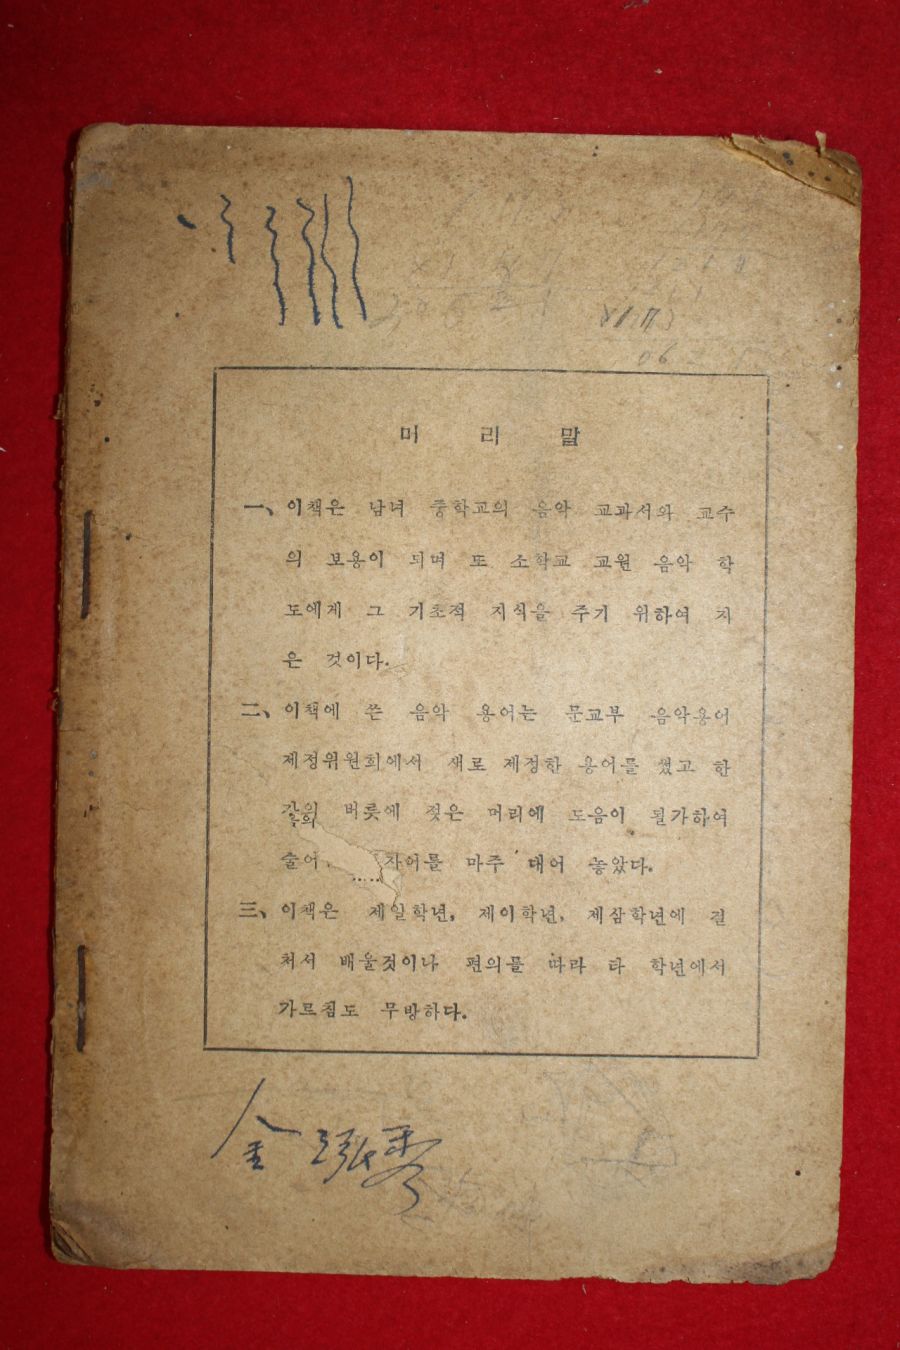 머 리 말
一、이책은 남녀 중학교의 음악 교과서와 교수
의 보용이 되며 또 소학교 교원 음악 학
도에게 그 기초적 지식을 주기 위하여 지
은 것이다.
二、이책에 쓴 음악 용어는 문교부 음악용어
제정위원회에서 새로 제정한 용어를 썼고 한
갈의 버릇에 젖은 머리에 도움이 될가하여
술어 자어를 마주 대어 놓았다.
三、이책은 제일학년, 제이학년, 제삼학년에 걸
처서 배울것이나 편의를 따라 타 학년에서
가르침도 무방하다.
金